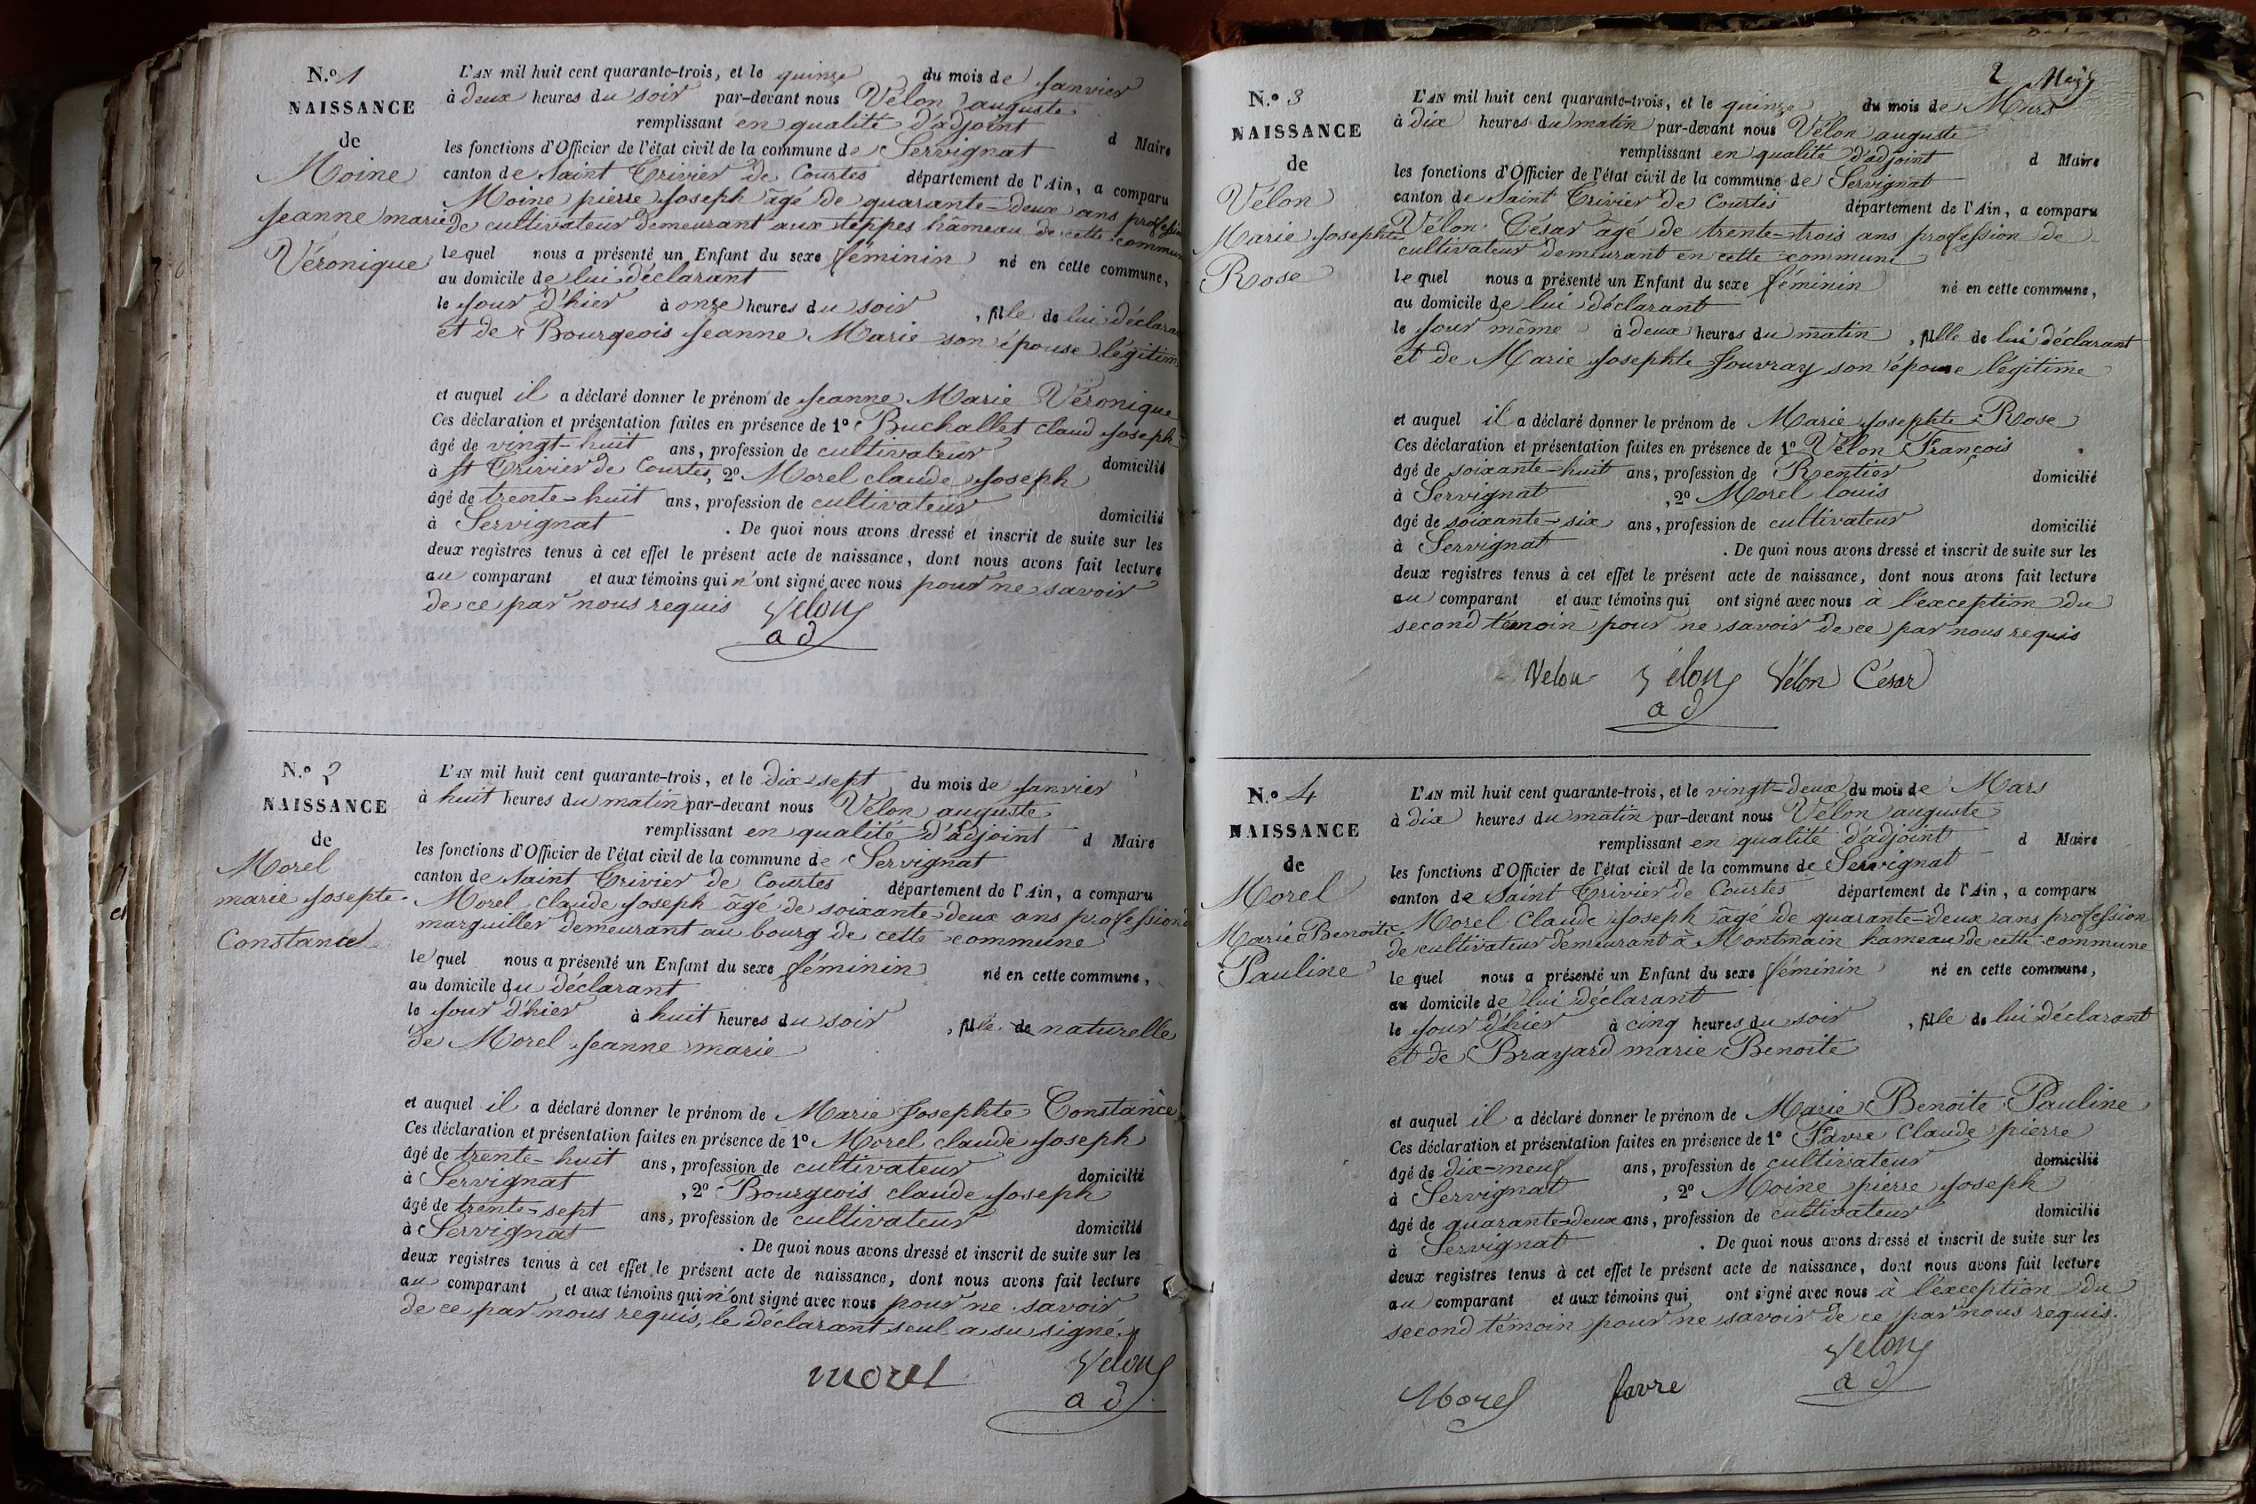 N.º 1
NAISSANCE
de
Moine
Jeanne marie
Véronique
L'AN mil huit cent quarante-trois, et le quinze du mois de Janvier
à deux heures du soir par-devant nous Vélon auguste
remplissant en qualité d'adjoint d Maire
les fonctions d'Officier de l'état civil de la commune de Servignat
canton de Saint Trivier de Courtes département de l'Ain, a comparu
Moine pierre Joseph âgé de quarante-deux ans profession
de cultivateur demeurant aux teppes hâmeau de cette commune
le quel nous a présenté un Enfant du sexe féminin né en cette commune,
au domicile de lui déclarant
le jour d'hier à onze heures du soir , fille de lui déclarant
et de Bourgeois Jeanne Marie son épouse légitime
et auquel il a déclaré donner le prénom de Jeanne Marie Véronique
Ces déclaration et présentation faites en présence de 1º Buchallet claud Joseph
âgé de vingt-huit ans, profession de cultivateur domicilié
à St Trivier de Courtes, 2º Morel claude Joseph
âgé de trente-huit ans, profession de cultivateur domicilié
à Servignat . De quoi nous avons dressé et inscrit de suite sur les
deux registres tenus à cet effet le présent acte de naissance, dont nous avons fait lecture
au comparant et aux témoins qui n'ont signé avec nous pour ne savoir
de ce par nous requis Velon
ad
N.º 2
NAISSANCE
de
Morel
marie Josepte
Constance
L'AN mil huit cent quarante-trois, et le dix-sept du mois de Janvier
à huit heures du matin par-devant nous Vélon auguste
remplissant en qualité d'adjoint d Maire
les fonctions d'Officier de l'état civil de la commune de Servignat
canton de Saint Trivier de Courtes département de l'Ain, a comparu
Morel claude Joseph âgé de soixante-deux ans profession de
marguiller demeurant au bourg de cette commune
le quel nous a présenté un Enfant du sexe féminin né en cette commune,
au domicile du déclarant
le jour d'hier à huit heures du soir , fille de naturelle
de Morel Jeanne marie
et auquel il a déclaré donner le prénom de Marie Josephte Constance
Ces déclaration et présentation faites en présence de 1º Morel claude Joseph
âgé de trente-huit ans, profession de cultivateur domicilié
à Servignat , 2º Bourgeois claude Joseph
âgé de trente-sept ans, profession de cultivateur domicilié
à Servignat . De quoi nous avons dressé et inscrit de suite sur les
deux registres tenus à cet effet le présent acte de naissance, dont nous avons fait lecture
au comparant et aux témoins qui n'ont signé avec nous pour ne savoir
de ce par nous requis, le déclarant seul a su signé.
morel Velon
ad
2
N.º 3
NAISSANCE
de
Vélon
Marie Josephte
Rose
L'AN mil huit cent quarante-trois, et le quinze du mois de Mars
à dix heures du matin par-devant nous Vélon auguste
remplissant en qualité d'adjoint d Maire
les fonctions d'Officier de l'état civil de la commune de Servignat
canton de Saint Trivier de Courtes département de l'Ain, a comparu
Vélon César âgé de trente-trois ans profession de
cultivateur demeurant en cette commune
le quel nous a présenté un Enfant du sexe féminin né en cette commune,
au domicile de lui déclarant
le jour même à deux heures du matin , fille de lui déclarant
et de Marie Josephte Jouvray son épouse légitime
et auquel il a déclaré donner le prénom de Marie Josephte Rose
Ces déclaration et présentation faites en présence de 1º Vélon François
âgé de soixante-huit ans, profession de Rentier domicilié
à Servignat , 2º Morel louis
âgé de soixante-six ans, profession de cultivateur domicilié
à Servignat . De quoi nous avons dressé et inscrit de suite sur les
deux registres tenus à cet effet le présent acte de naissance, dont nous avons fait lecture
au comparant et aux témoins qui ont signé avec nous à l'exception du
second témoin pour ne savoir de ce par nous requis
Velon Vélon Vélon César
ad
N.º 4
NAISSANCE
de
Morel
Marie Benoite
Pauline
L'AN mil huit cent quarante-trois, et le vingt-deux du mois de Mars
à dix heures du matin par-devant nous Vélon auguste
remplissant en qualité d'adjoint d Maire
les fonctions d'Officier de l'état civil de la commune de Servignat
canton de Saint Trivier de Courtes département de l'Ain, a comparu
Morel Claude Joseph âgé de quarante-deux ans profession
de cultivateur demeurant à Montmain hameau de cette commune
le quel nous a présenté un Enfant du sexe féminin né en cette commune,
au domicile de lui déclarant
le jour d'hier à cinq heures du soir , fille de lui déclarant
et de Brayard marie Benoite
et auquel il a déclaré donner le prénom de Marie Benoite Pauline
Ces déclaration et présentation faites en présence de 1º Favre Claude pierre
âgé de dix-neuf ans, profession de cultivateur domicilié
à Servignat , 2º Moine pierre Joseph
âgé de quarante-deux ans, profession de cultivateur domicilié
à Servignat . De quoi nous avons dressé et inscrit de suite sur les
deux registres tenus à cet effet le présent acte de naissance, dont nous avons fait lecture
au comparant et aux témoins qui ont signé avec nous à l'exception du
second témoin pour ne savoir de ce par nous requis.
Velon
Morel favre ad